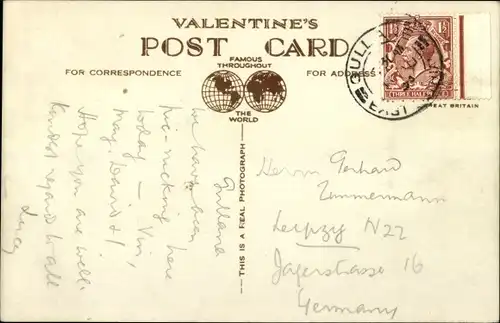 VALENTINE'S
POST CARD
FAMOUS
THROUGHOUT
THE
WORLD
FOR CORRESPONDENCE
FOR ADDRESS
GREAT BRITAIN
THREE HALFPENCE
THIS IS A REAL PHOTOGRAPH
Gullane
We have been
pic-nicking here
today – Vivi,
May, David & I,
Hope you are well.
Kindest regards to all
Lucy
Herrn Gerhard
Zimmermann
Leipzig N22
Jägerstrasse 16
Germany